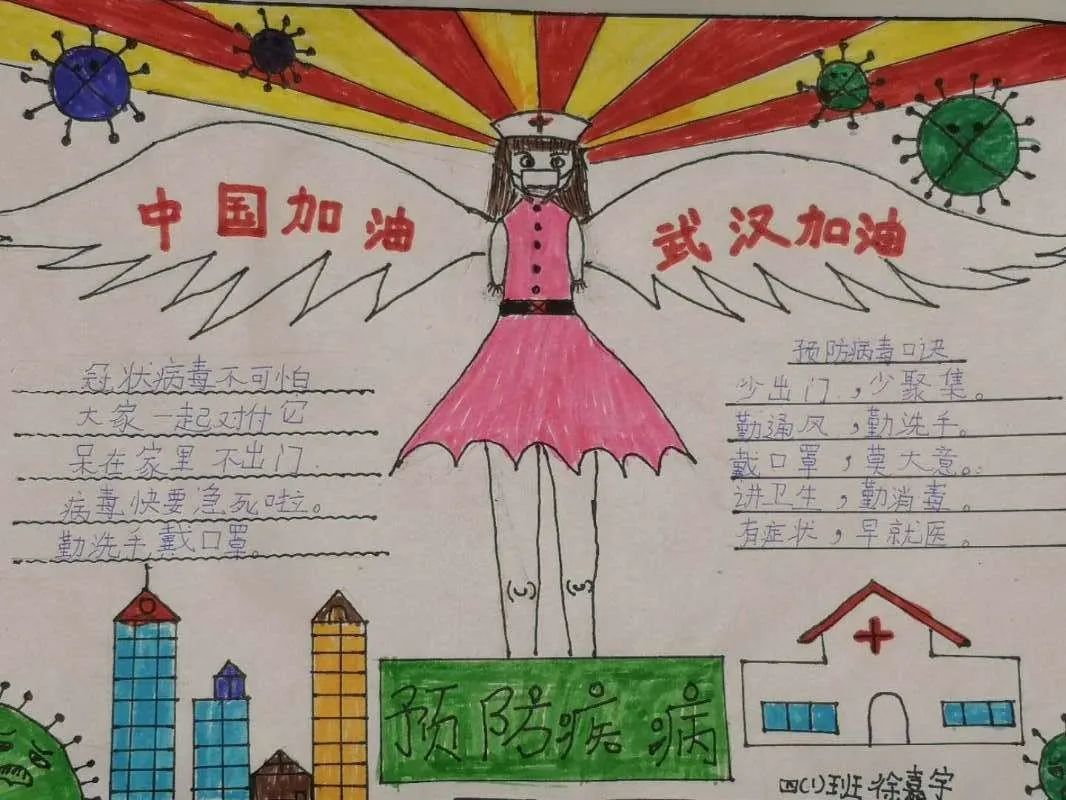 中国加油
武汉加油
冠状病毒不可怕
大家一起对付它
呆在家里不出门
病毒快要急死啦。
勤洗手戴口罩。
预防病毒口诀
少出门,少聚集。
勤通风,勤洗手。
戴口罩,莫大意。
讲卫生,勤消毒。
有症状,早就医。
预防疾病
四(1)班徐嘉宇